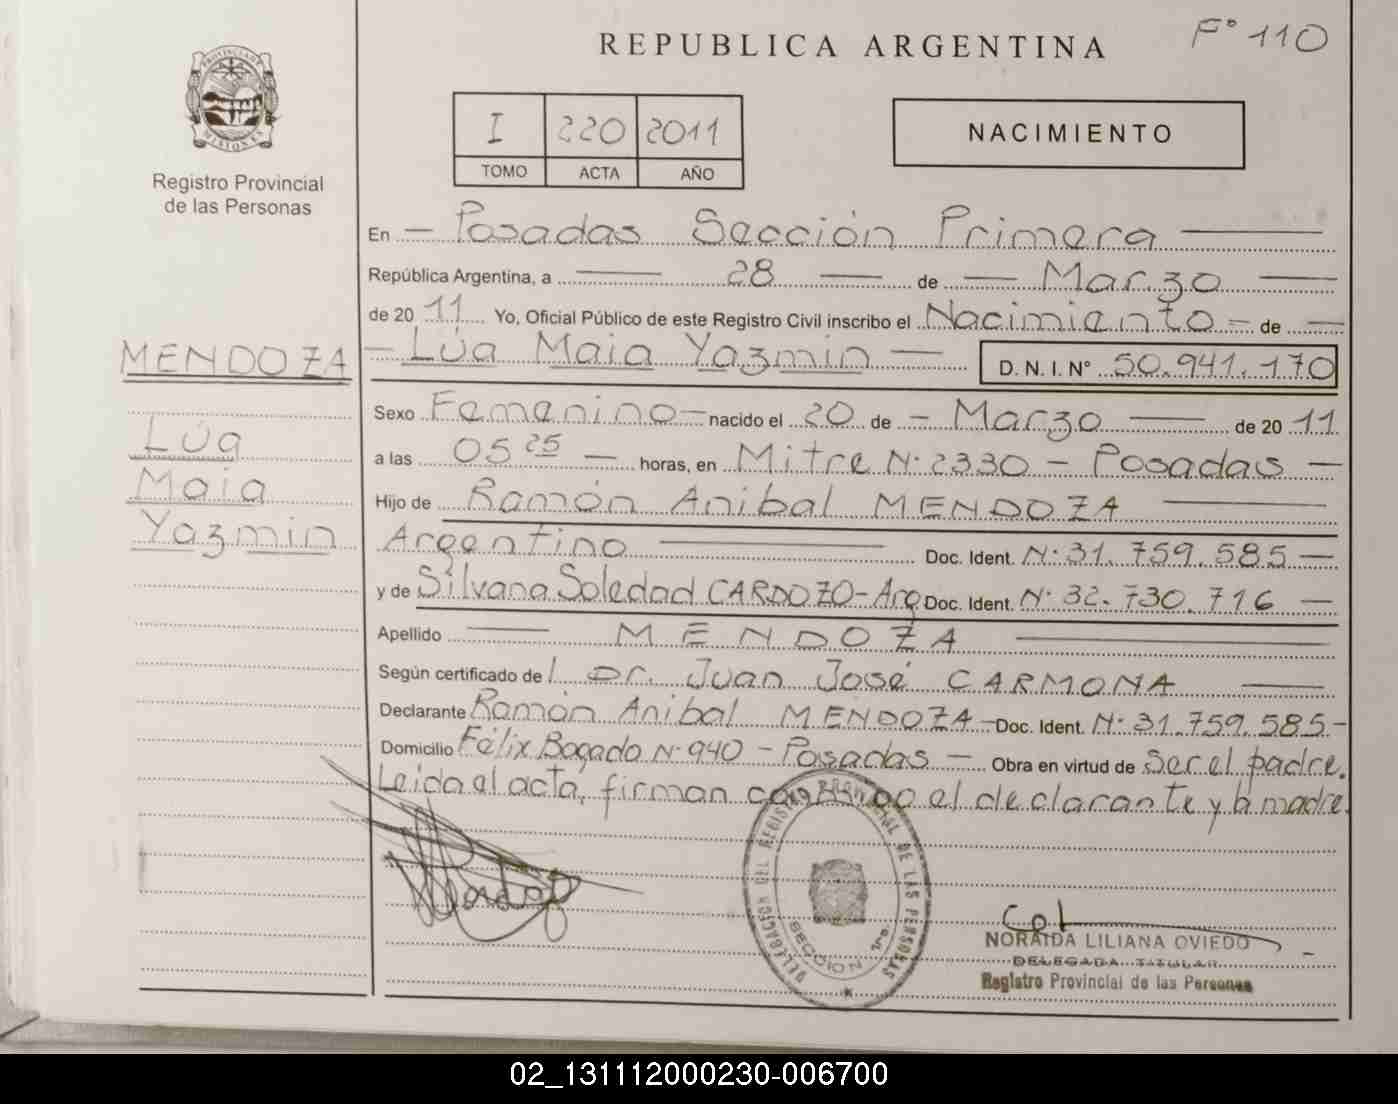 REPUBLICA ARGENTINA
Fº 110
PROVINCIA DE MISIONES
Registro Provincial
de las Personas
I 220 2011
TOMO ACTA AÑO
NACIMIENTO
En — Posadas Sección Primera —
República Argentina, a — 28 — de — Marzo —
de 2011 Yo, Oficial Público de este Registro Civil inscribo el Nacimiento — de —
— Lúa Maia Yazmin — D. N. I. Nº 50.941.170
MENDOZA
Lúa
Maia
Yazmin
Sexo Femenino — nacido el 20 de — Marzo — de 2011
a las 05 25 — horas, en Mitre Nº 2330 — Posadas —
Hijo de Ramón Anibal MENDOZA —
Argentino — Doc. Ident. Nº 31.759.585 —
y de Silvana Soledad CARDOZO - Arg Doc. Ident. Nº 32.730.716 —
Apellido — MENDOZA —
Según certificado de l Dr. Juan José CARMONA —
Declarante Ramón Anibal MENDOZA — Doc. Ident. Nº 31.759.585 -
Domicilio Félix Bogado Nº 940 — Posadas — Obra en virtud de ser el padre.
Leida el acta, firman conmigo el declarante y la madre.
DELEGACION DEL REGISTRO PROVINCIAL DE LAS PERSONAS
SECCION 1ra.
NORAIDA LILIANA OVIEDO
DELEGADA TITULAR
Registro Provincial de las Personas
02_131112000230-006700